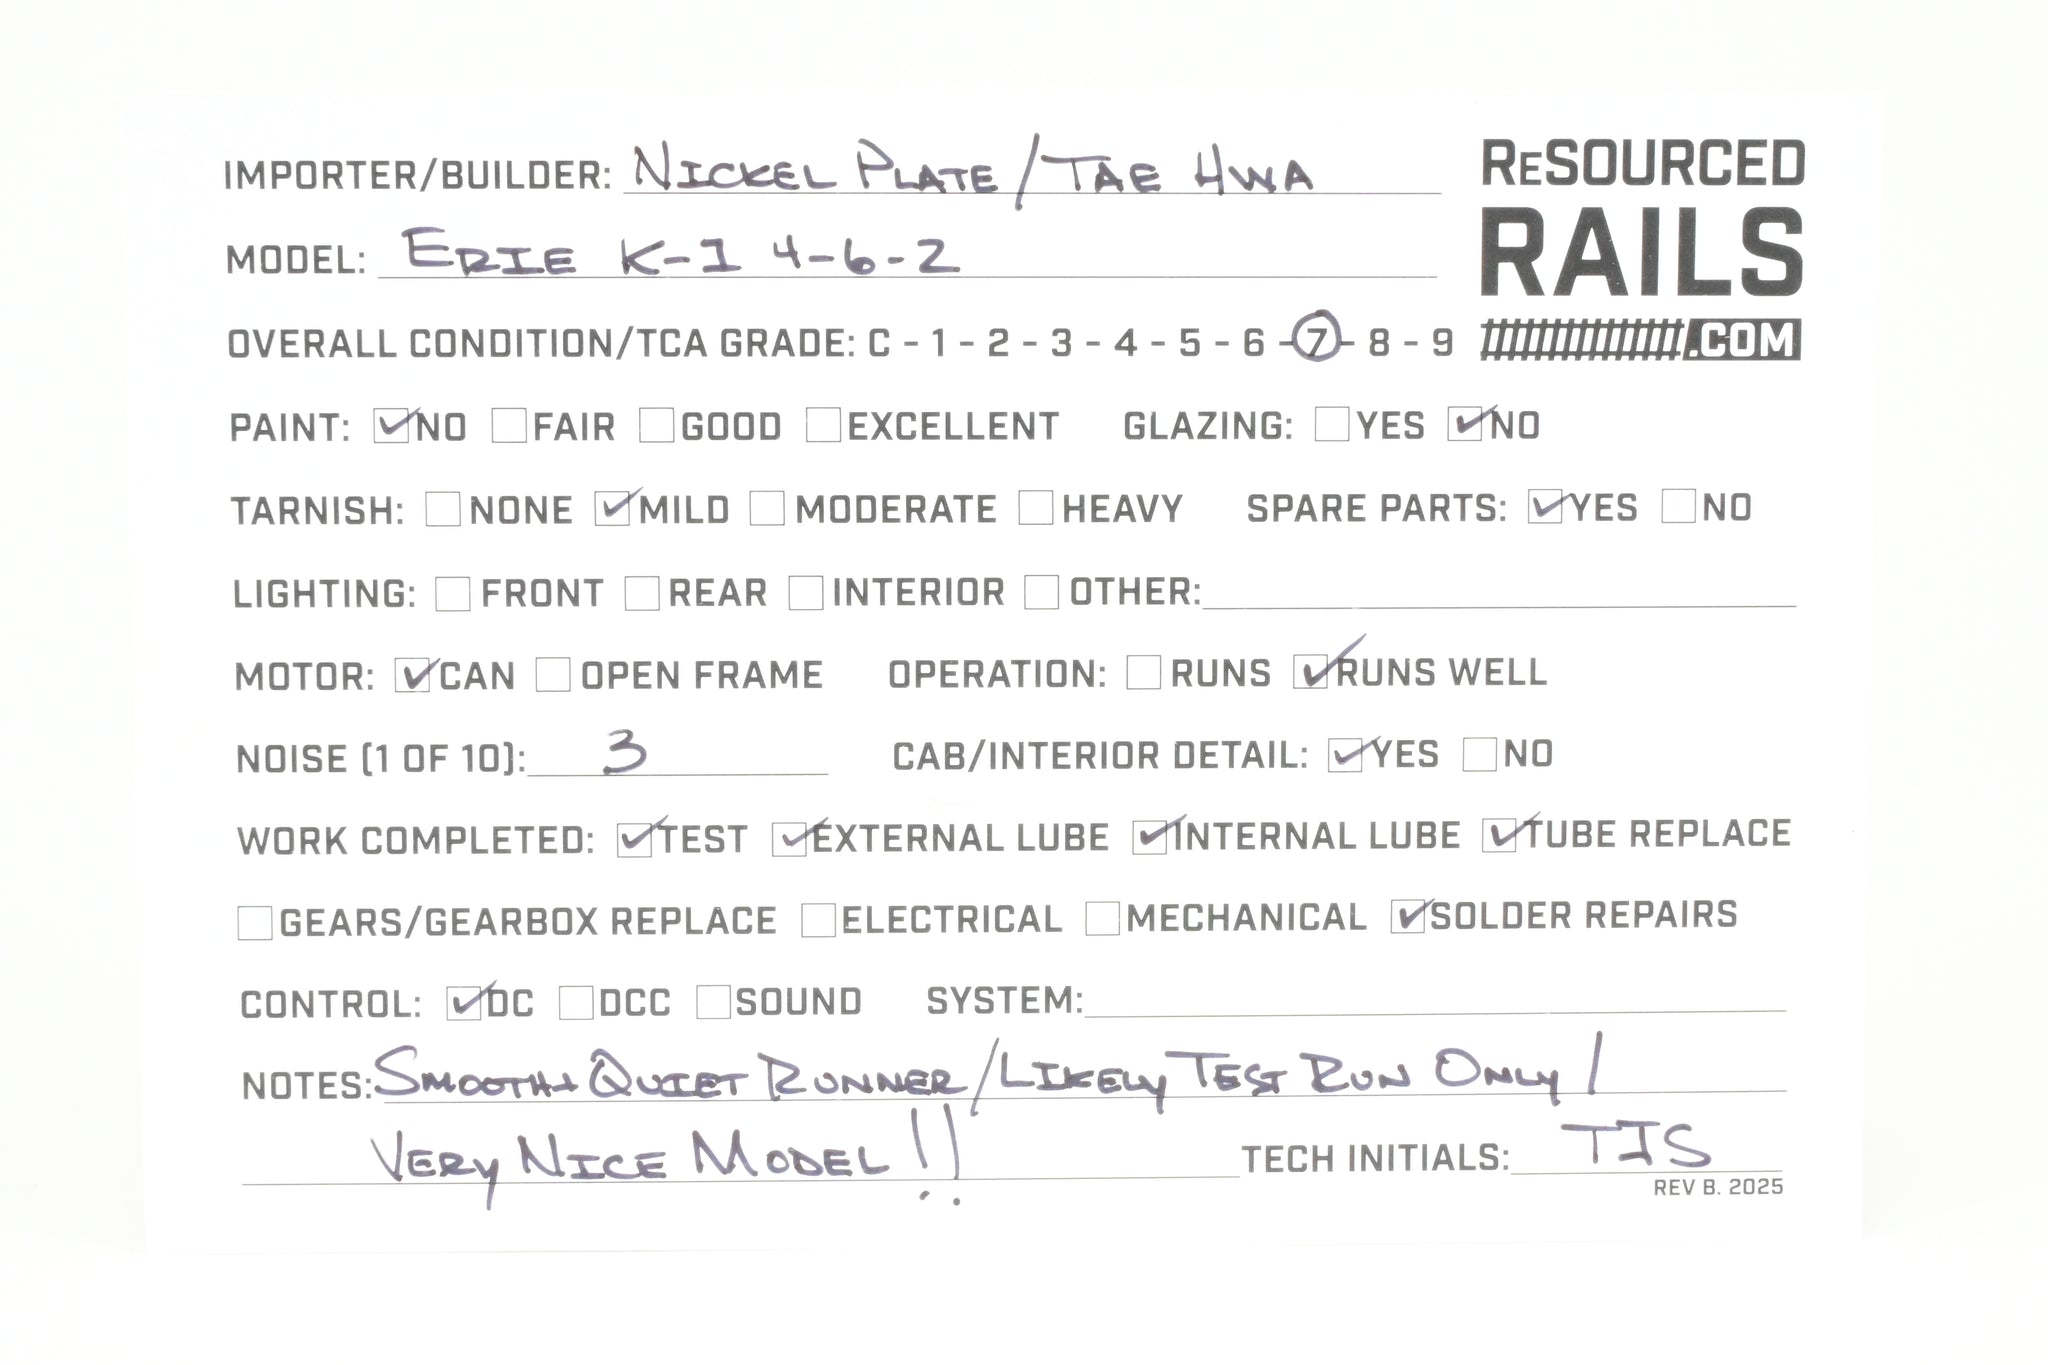 IMPORTER/BUILDER: NICKEL PLATE/TAE HWA
RESOURCED
RAILS
.COM
MODEL: ERIE K-1 4-6-2
OVERALL CONDITION/TCA GRADE: C - 1 - 2 - 3 - 4 - 5 - 6 - 7 - 8 - 9
PAINT: NO FAIR GOOD EXCELLENT GLAZING: YES NO
TARNISH: NONE MILD MODERATE HEAVY SPARE PARTS: YES NO
LIGHTING: FRONT REAR INTERIOR OTHER:
MOTOR: CAN OPEN FRAME OPERATION: RUNS RUNS WELL
NOISE (1 OF 10): 3 CAB/INTERIOR DETAIL: YES NO
WORK COMPLETED: TEST EXTERNAL LUBE INTERNAL LUBE TUBE REPLACE
GEARS/GEARBOX REPLACE ELECTRICAL MECHANICAL SOLDER REPAIRS
CONTROL: DC DCC SOUND SYSTEM:
NOTES: SMOOTH + QUIET RUNNER/LIKELY TEST RUN ONLY/
VERY NICE MODEL!! TECH INITIALS: TJS
REV B. 2025